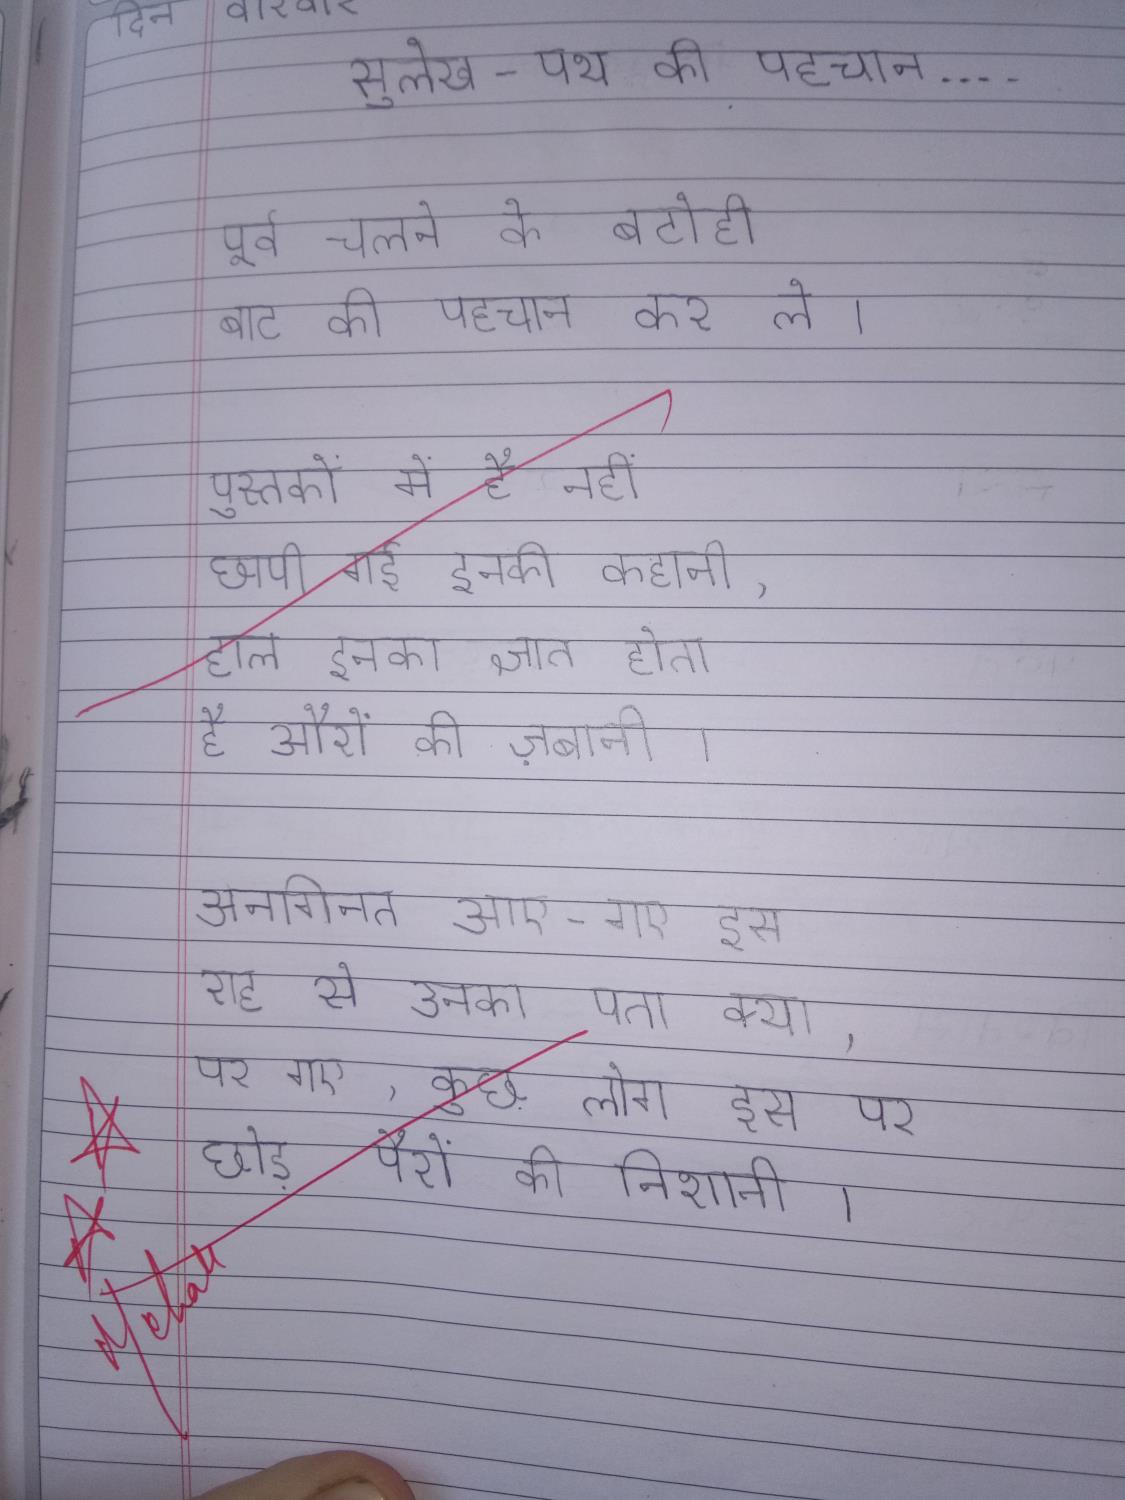 दिन वारवार
सुलेख - पथ की पहचान....
पूर्व चलने के बटोही
बाट की पहचान कर ले ।
पुस्तकों में है नहीं
छापी गई इनकी कहानी,
हाल इनका ज्ञात होता
है औरों की ज़बानी ।
अनगिनत आए-गए इस
राह से उनका पता क्या,
पर गए, कुछ लोग इस पर
छोड़ पैरों की निशानी ।